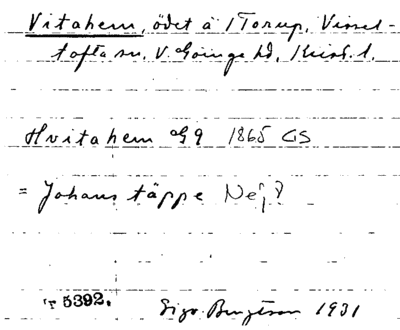 Vitahem, ödet å 1 Torup, Vissel-
tofta sn, V. Göinge hd, Krist. l.
Hvitahem G9 1865 GS
= Johans täppe Nej?
5392. Bengtson 1931